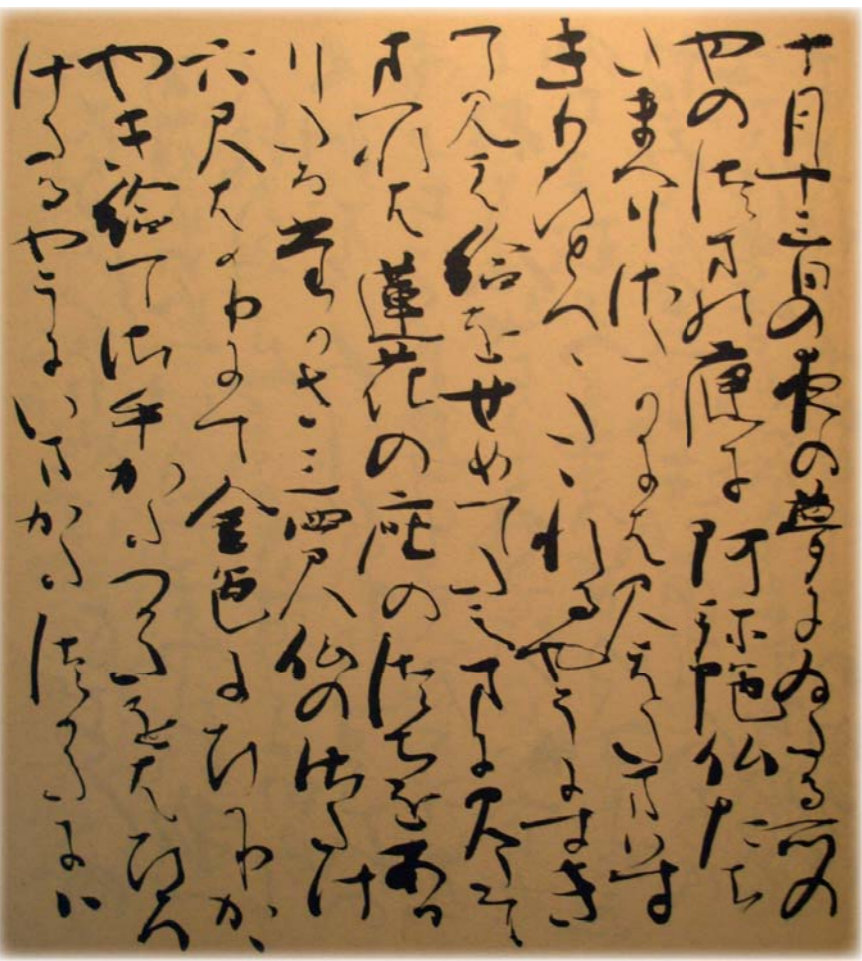 十月十三日の夜の夢にゐたる所の
やのつまの庭に阿弥陀仏たち
たまへりさたかには見えたまはす
きりひとへへたゝれるやうにすき
て見え給をせめてたえまに見たて
まつれは蓮花の座のつちをあか
りたるたかさ三四尺仏の御たけ
六尺はかりにて金色にひかりかゝ
やき給て御手かたつかたをはひろ
けたるやうにいまかたつかたには